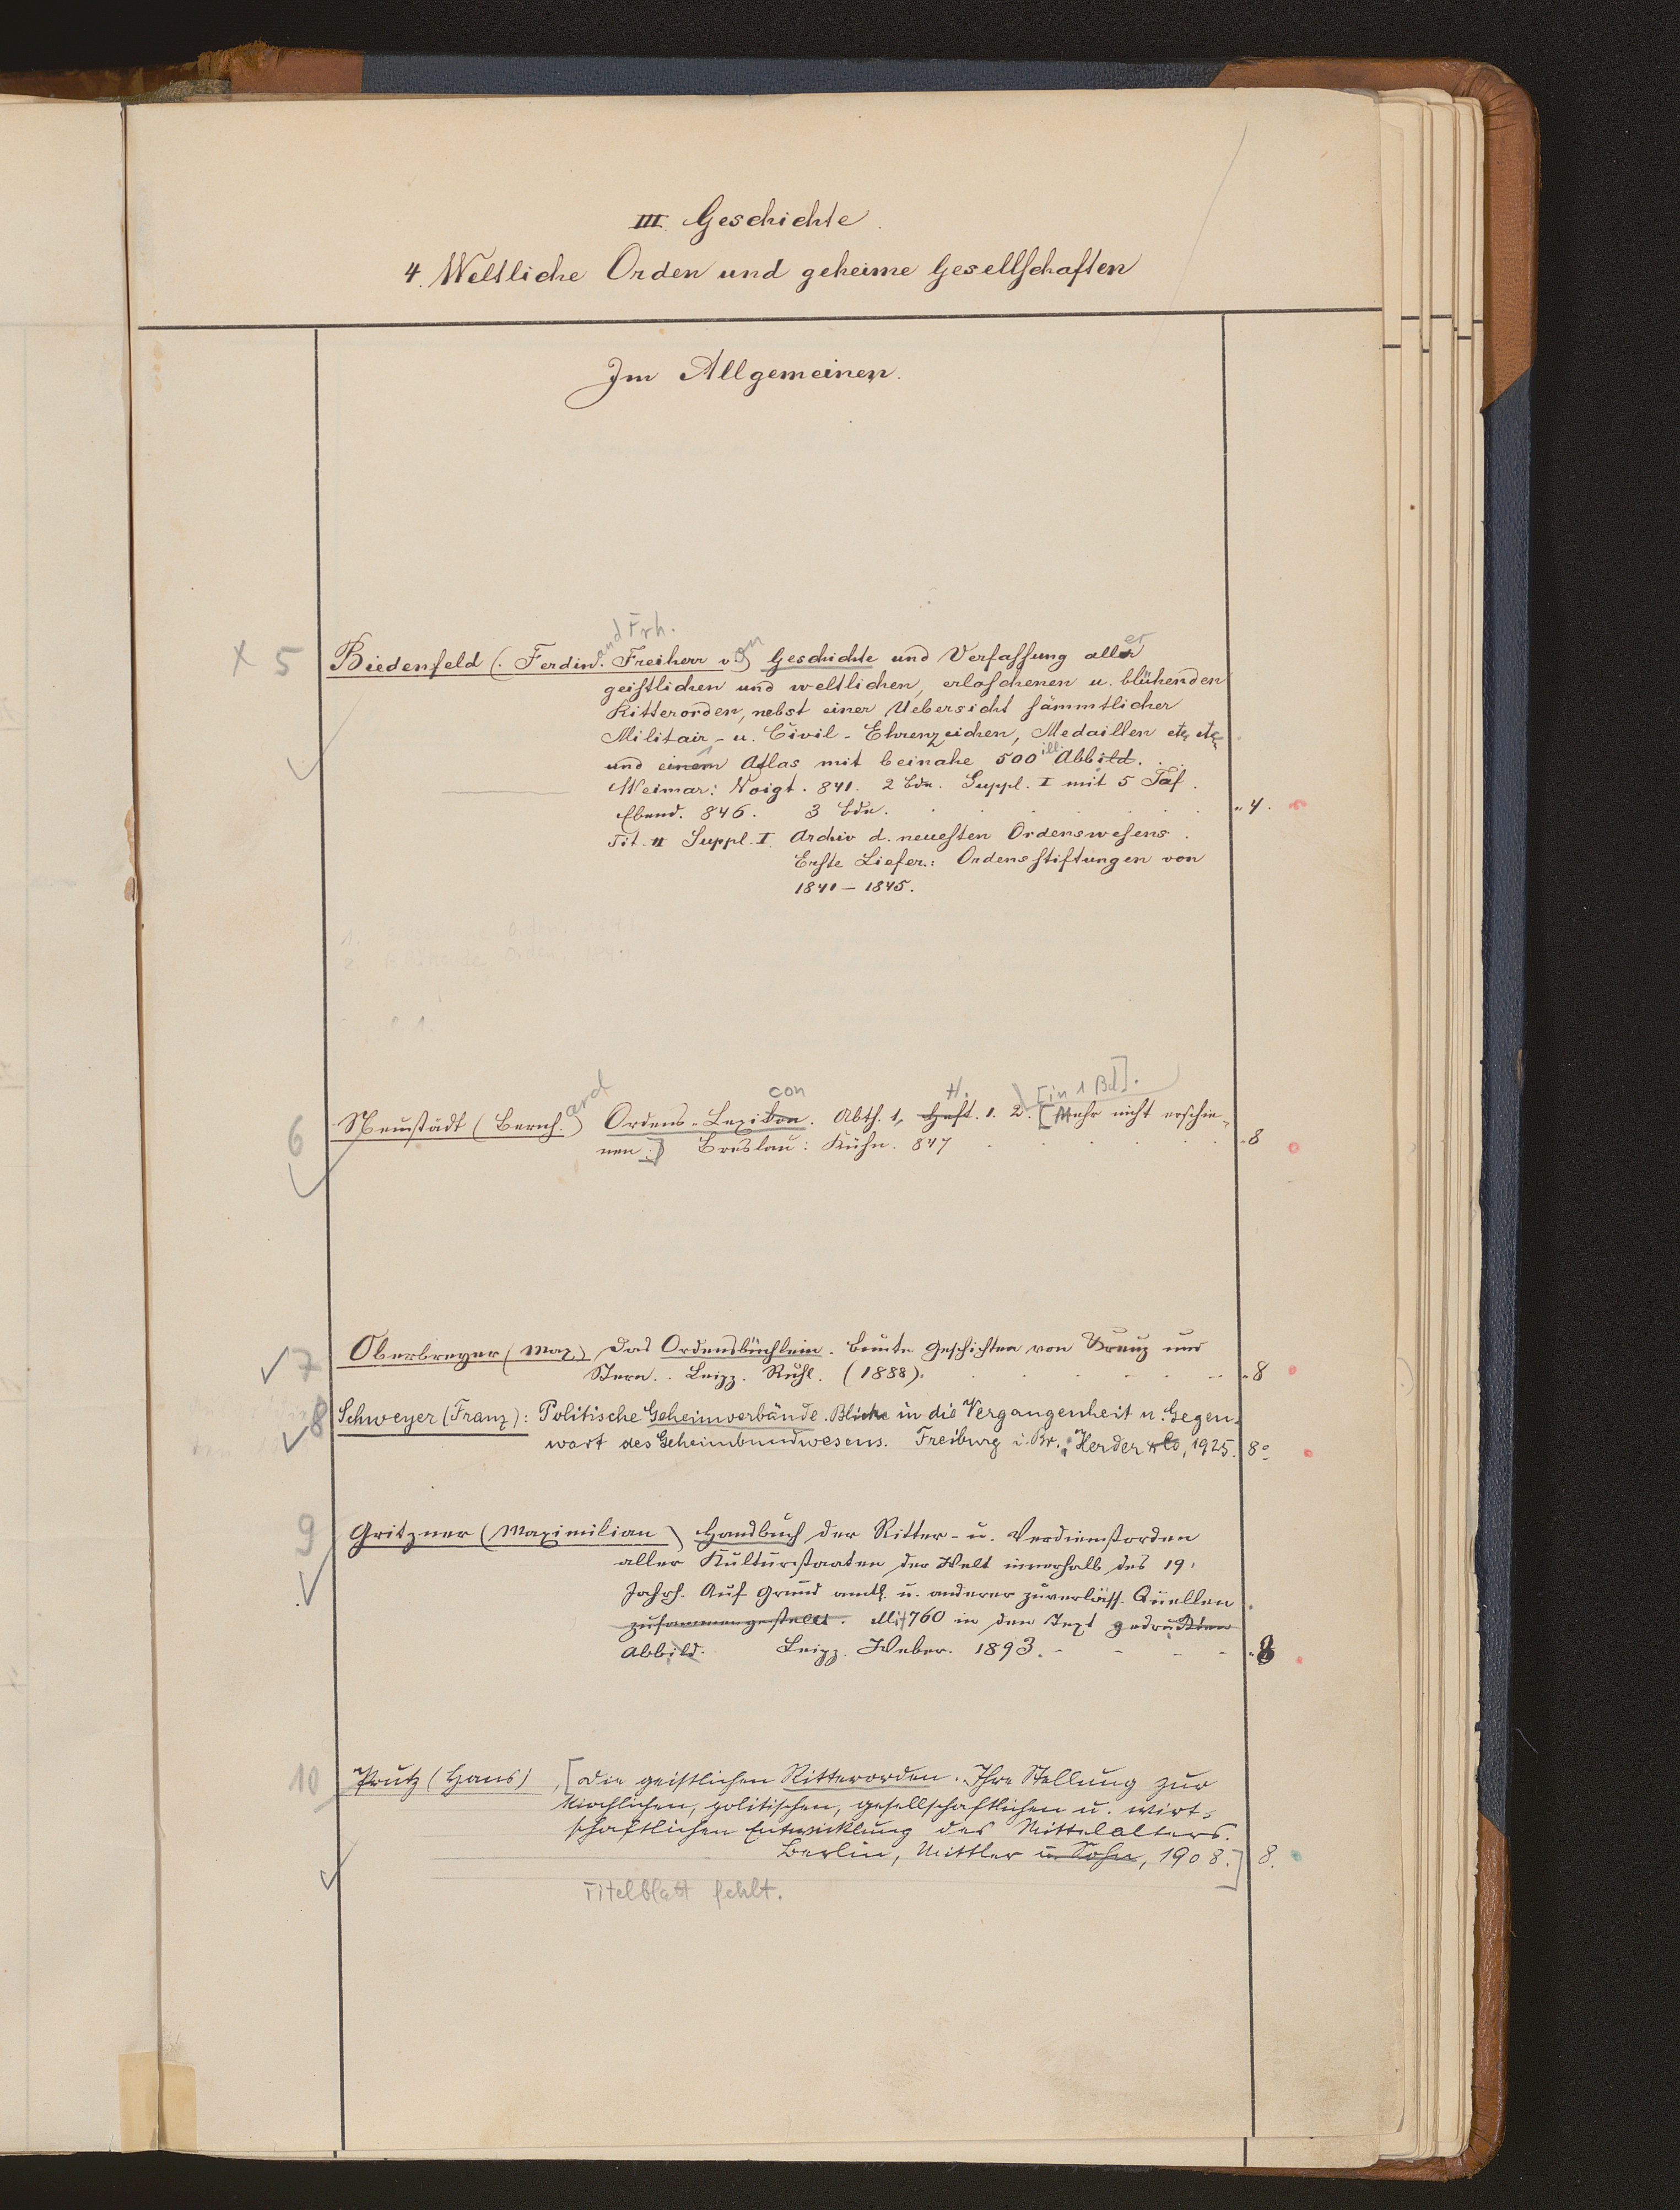 III. Geschichte.
4. Weltliche Orden und geheime Gesellschaften
Im Allgemeinen.
and Frh. on er
X 5 Biedenfeld (. Ferdin. Freiherr v.) Geschichte und Verfassung aller
geistlichen und weltlichen, erloschenen u. blühenden
Ritterorden, nebst einer Uebersicht sämmtlicher
Militair- u. Civil-Ehrenzeichen, Medaillen etc. etc.
und einem Atlas mit beinahe 500 ill. Abbild.
Weimar: Voigt. 841. 2 Bde. Suppl. I mit 5 Taf.
Ebend. 846. 3 Bde. „ 4.
Tit. Suppl. I. Archiv d. neuesten Ordenswesens.
Erste Liefer.: Ordensstiftungen von
1841 – 1845.
ard con H. [in 1 Bd].
6 Neustädt (Bernh.) Ordens-Lexikon. Abth. 1, Heft. 1. 2. [Mehr nicht erschie-
nen.] Breslau: Kühn. 847 „ 8
7 Oberbreyer (Max) Das Ordensbüchlein. Bunte Geschichten von Kreuz und
Stern. Leipz. Ruhl. (1888). „ 8
8 Schweyer (Franz): Politische Geheimverbände. Blicke in die Vergangenheit u. Gegen-
wart des Geheimbundwesens. Freiburg i. Br.: Herder & Co, 1925. 8°
9 Gritzner (Maximilian) Handbuch der Ritter- u. Verdienstorden
aller Kulturstaaten der Welt innerhalb des 19.
Jahrh. Auf Grund amtl. u. anderer zuverläss. Quellen
zusammengestellt. Mit 760 in den Text gedruckten
Abbild. Leipz. Weber. 1893. „ 8
10 Prutz (Hans), [Die geistlichen Ritterorden. Ihre Stellung zur
kirchlichen, politischen, gesellschaftlichen u. wirt-
schaftlichen Entwicklung des Mittelalters.
Berlin, Mittler u. Sohn, 1908.] 8.
Titelblatt fehlt.